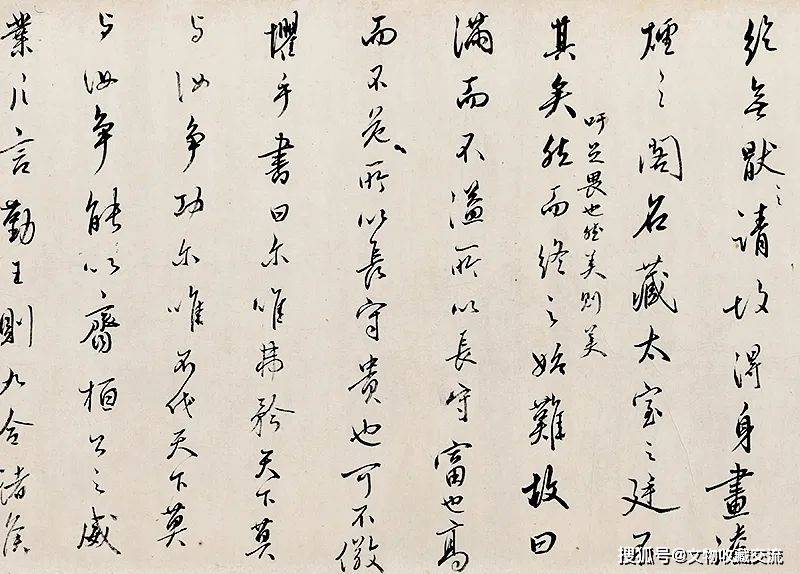 終無猒之請故得身畫凌
煙之閣名藏太室之廷
吁足畏也然美則美
其矣然而終之始難故曰
滿而不溢所以長守富也高
而不危所以長守貴也可不儆
懼乎書曰尔唯弗矜天下莫
与汝争功尔唯不伐天下莫
与汝争能以齊桓公之威
業片言勤王則九合諸侯
搜狐号@文物收藏交流